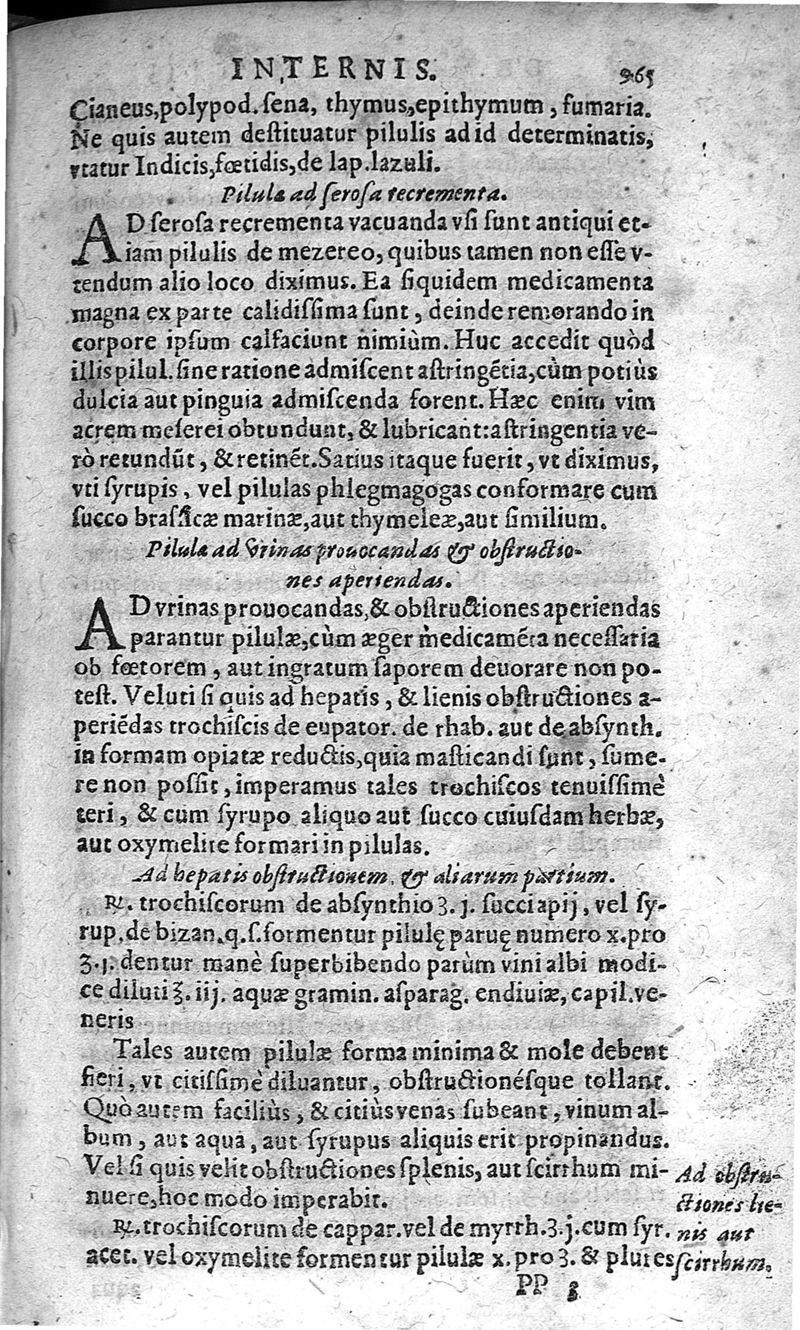 INTERNIS. 965
Cianeus, polypod. ſena, thymus, epithymum, fumaria.
Ne quis autem deſtituatur pilulis ad id determinatis,
vtatur Indicis, fœtidis, de lap. lazuli.
Pilulæ ad ſeroſa recrementa.
AD ſeroſa recrementa vacuanda vſi ſunt antiqui et-
iam pilulis de mezereo, quibus tamen non eſſe v-
tendum alio loco diximus. Ea ſiquidem medicamenta
magna ex parte calidiſſima ſunt, deinde remorando in
corpore ipſum calfaciunt nimiùm. Huc accedit quòd
illis pilul. ſine ratione admiſcent aſtringẽtia, cùm potiùs
dulcia aut pinguia admiſcenda forent. Hæc enim vim
acrem meſerei obtundunt, & lubricant: aſtringentia ve-
rò retundũt, & retinẽt. Satius itaque fuerit, vt diximus,
vti ſyrupis, vel pilulas phlegmagogas conformare cum
ſucco braſſicæ marinæ, aut thymeleæ, aut ſimilium.
Pilulæ ad vrinas prouocandas & obſtructio-
nes aperiendas.
AD vrinas prouocandas, & obſtructiones aperiendas
parantur pilulæ, cùm æger medicamẽta neceſſaria
ob fœtorem, aut ingratum ſaporem deuorare non po-
teſt. Veluti ſi quis ad hepatis, & lienis obſtructiones a-
periẽdas trochiſcis de eupator. de rhab. aut de abſynth.
in formam opiatæ reductis, quia maſticandi ſunt, ſume-
re non poſſit, imperamus tales trochiſcos tenuiſſimè
teri, & cum ſyrupo aliquo aut ſucco cuiuſdam herbæ,
aut oxymelite formari in pilulas.
Ad hepatis obſtructionem, & aliarum partium.
℞. trochiſcorum de abſynthio ʒ. j. ſucci apij, vel ſy-
rup. de bizan. q. ſ. formentur pilulę paruę numero x. pro
ʒ. j. dentur manè ſuperbibendo parùm vini albi modi-
ce diluti ℥. iij. aquæ gramin. aſparag. endiuiæ, capil. ve-
neris
Tales autem pilulæ forma minima & mole debent
fieri, vt citiſſimè diluantur, obſtructionéſque tollant.
Quò autem faciliùs, & citiùs venas ſubeant, vinum al-
bum, aut aqua, aut ſyrupus aliquis erit propinandus.
Vel ſi quis velit obſtructiones ſplenis, aut ſcirrhum mi-
nuere, hoc modo imperabit.
℞. trochiſcorum de cappar. vel de myrrh. ʒ. j. cum ſyr.
acet. vel oxymelite formentur pilulæ x. pro ʒ. & plures
Ad obſtru-
ctiones lie-
nis aut
ſcirrhum.
PP 3